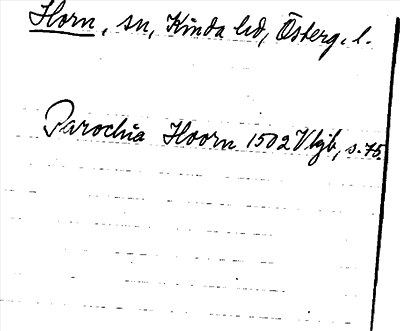 Horn, sn, Kinda hd, Österg. l.
Parochia Hoorn 1502 Vtjb, s. 75.